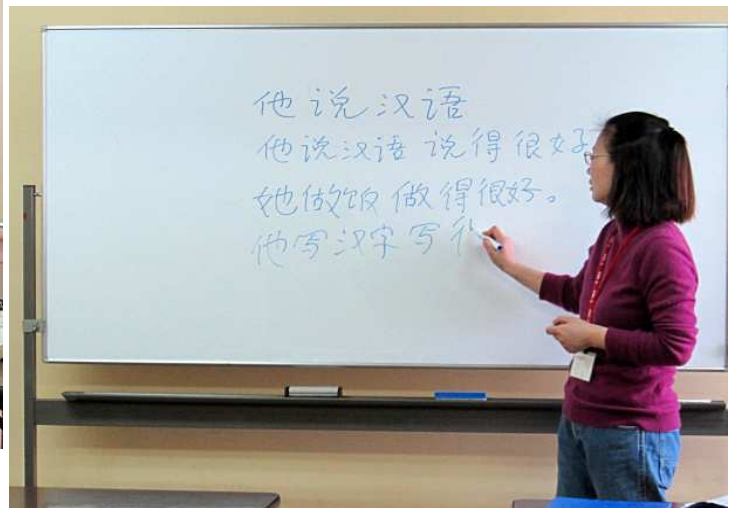 他说汉语
他说汉语说得很好
她做饭做得很好。
他写汉字写